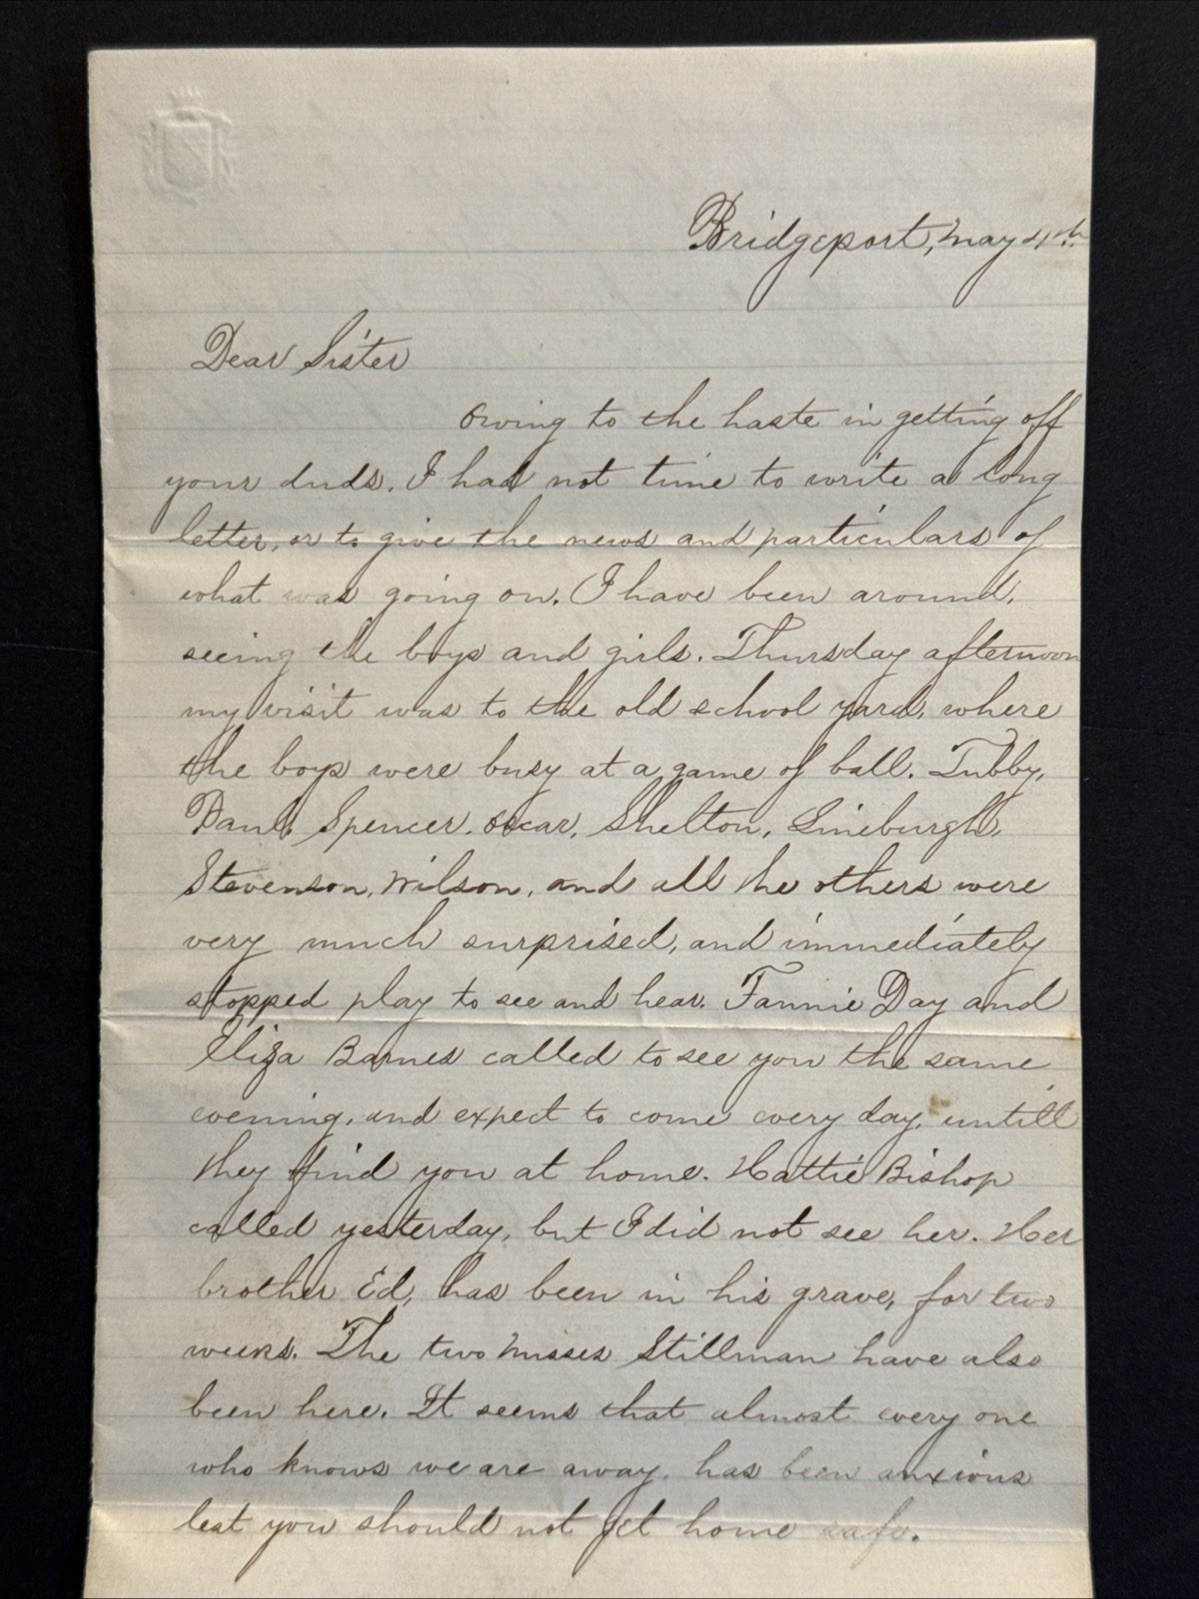 Bridgeport, May 4th.
Dear Sister
Owing to the haste in getting off
your duds. I had not time to write a long
letter, or to give the news and particulars of
what was going on. I have been around,
seeing the boys and girls. Thursday afternoon
my visit was to the old school yard, where
the boys were busy at a game of ball. Tubby,
Paul, Spencer. Oscar, Shelton, Lineburgh,
Stevenson, Wilson, and all the others were
very much surprised, and immediately
stopped play to see and hear. Fannie Day and
Eliza Barnes called to see you the same
evening, and expect to come every day, untill
they find you at home. Hattie Bishop
called yesterday, but I did not see her. Her
brother Ed, has been in his grave, for two
weeks. The two Misses Stillman have also
been here. It seems that almost every one
who knows we are away. has been anxious
lest you should not get home safe.